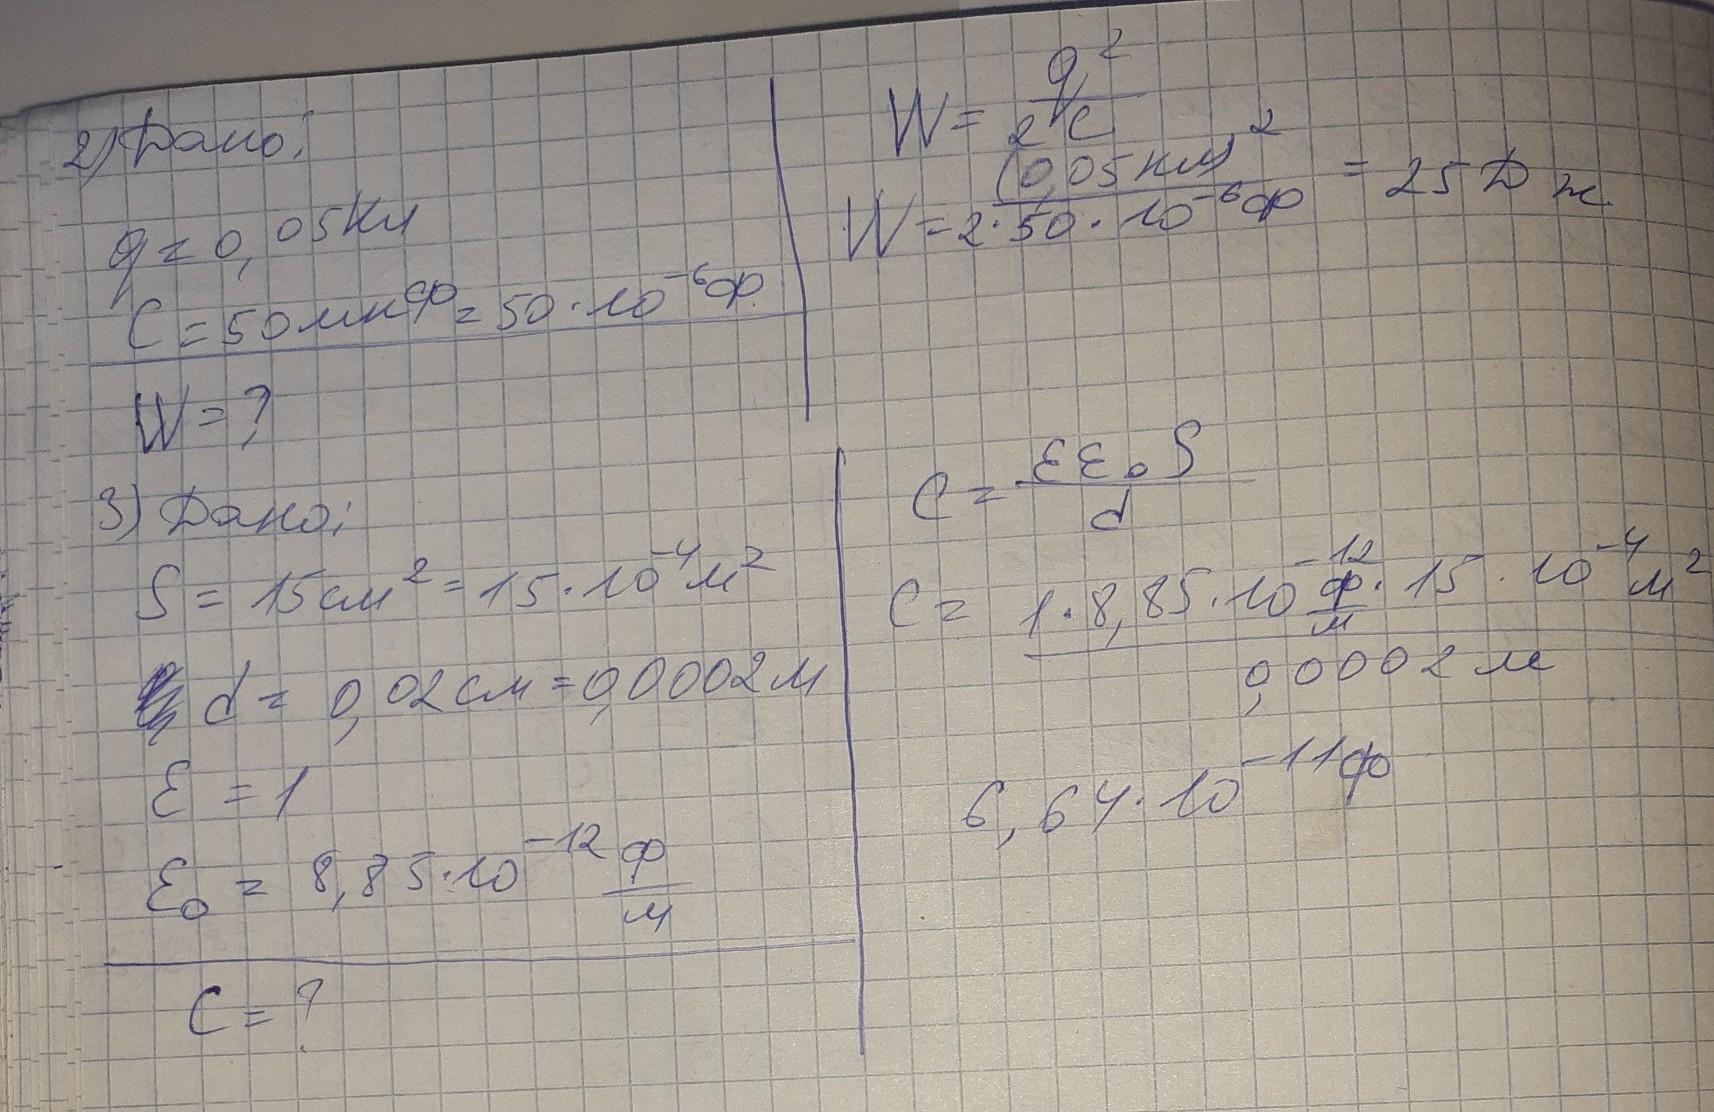 2) Дано:
q = 0,05 Кл
C = 50 мкф = 50 · 10⁻⁶ ф
W = ?
W = q² / 2C
W = (0,05 Кл)² / 2 · 50 · 10⁻⁶ ф = 25 Дж
3) Дано:
S = 15 см² = 15 · 10⁻⁴ м²
d = 0,02 см = 0,0002 м
ε = 1
ε₀ = 8,85 · 10⁻¹² ф/м
C = ?
C = εε₀S / d
C = 1 · 8,85 · 10⁻¹² ф/м · 15 · 10⁻⁴ м² / 0,0002 м
6,64 · 10⁻¹¹ ф